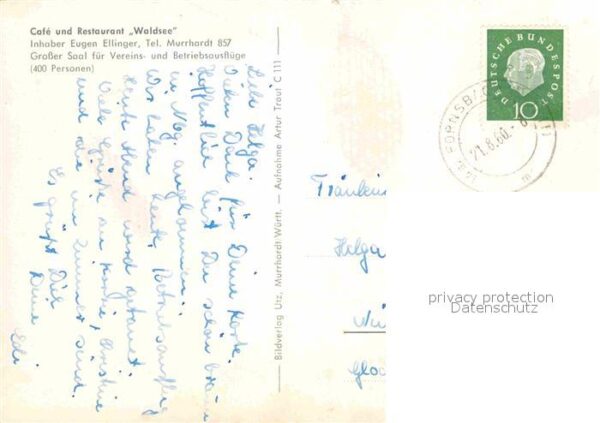 Café und Restaurant „Waldsee"
Inhaber Eugen Ellinger, Tel. Murrhardt 857
Großer Saal für Vereins- und Betriebsausflüge
(400 Personen)
Liebe Helga.
Vielen Dank für Deine Karte.
Hoffentlich bist Du schön braun
in Nbg. angekommen.
Wir haben heute Betriebsausflug
Heute Abend wird getanzt
Viele Grüße an Christine
und die im Zimmer sind.
Es grüßt Dich
Deine
Edi
Bildverlag Utz, Murrhardt Württ. — Aufnahme Artur Traut C 111
DEUTSCHE BUNDESPOST
10
FORNSBACH
21.8.60.-8
Fräulein
Helga
privacy protection
Datenschutz